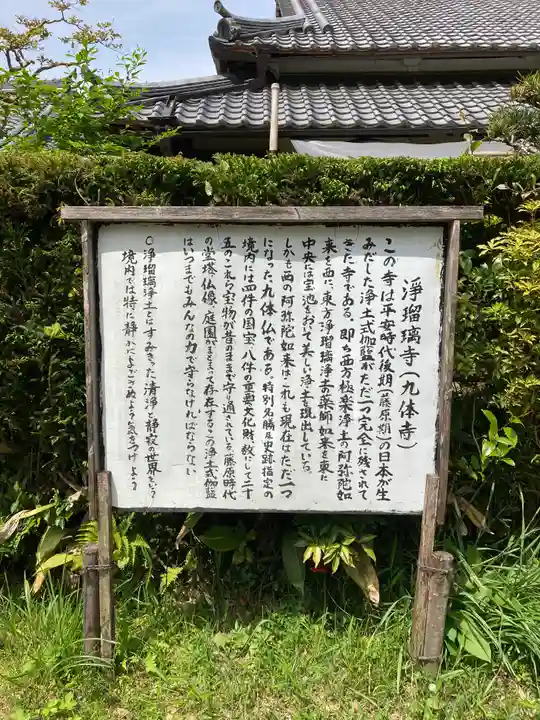 浄瑠璃寺(九体寺)
この寺は平安時代後期(藤原期)の日本が生
みだした浄土式伽藍がただ一つ完全に残されて
きた寺である。即ち西方極楽浄土の阿弥陀如
来を西に、東方浄瑠璃浄土の薬師如来を東に
中央には宝池をおいて美しい浄土を現出している。
しかも西の阿弥陀如来は、これも現在はただ一つ
になった九体仏である。特別名勝及史跡指定の
境内には四件の国宝、八件の重要文化財、数にして二十
五のこれら宝物が昔のままで守り通されている。藤原時代
の堂塔、仏像、庭園がまとまって存在するこの浄土式伽藍
はいつまでもみんなの力で守らなければならない
〇浄瑠璃浄土とはすみきった清浄と静寂の世界をいう
境内では特に静かによごさぬよう気をつけよう